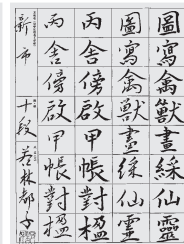 圖寫禽獸畫綵仙靈
圖寫禽獸畫綵仙靈
丙舍傍啟甲帳對楹
丙舍傍啟甲帳對楹
新市 十段 若林都子